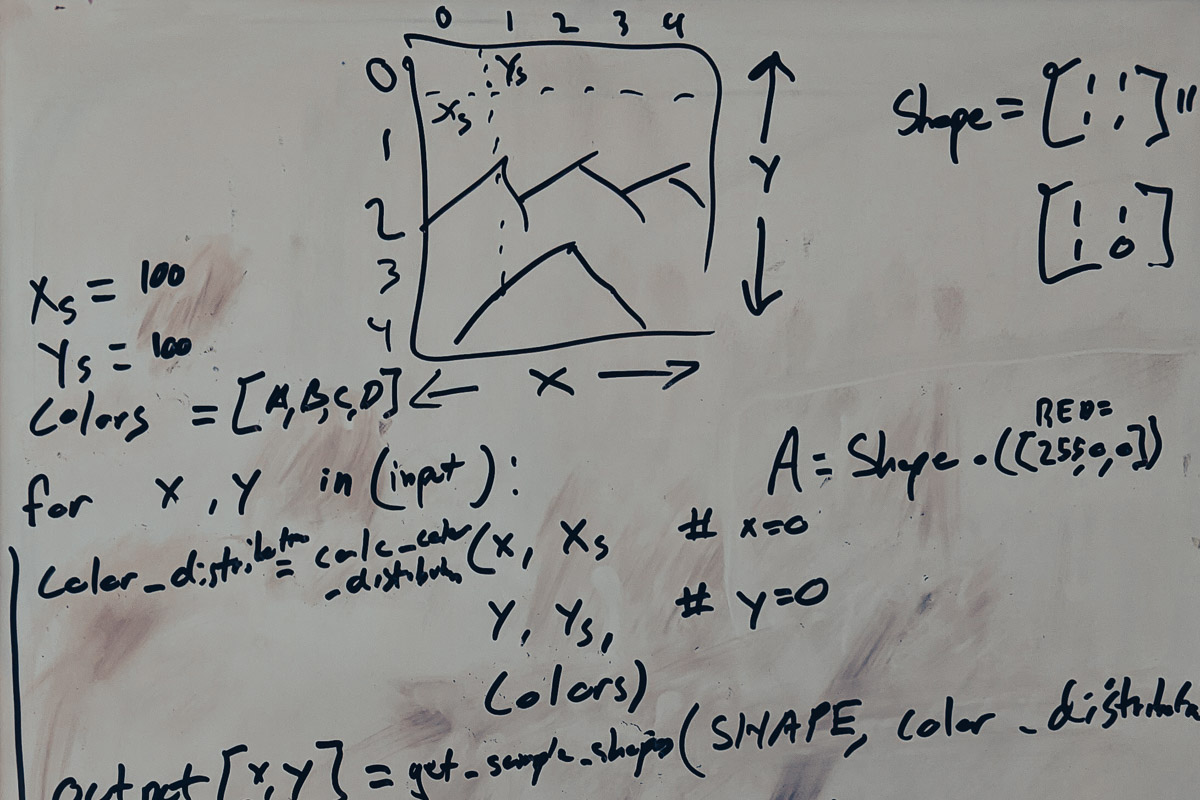 0 1 2 3 4
0
Ys
Xs
1
2
3
4
Y
X
Shape = [1 1
1 1]"
[1 1
1 0]
Xs = 100
Ys = 100
Colors = [A,B,C,D]
A = Shape.(([255,0,0])
RED=
for X,Y in (input):
color_distribution = calc_color_distributn (X, Xs # x=0
Y, Ys, # y=0
Colors)
output [x,y] = get_sample_shapes (SHAPE, color_distributn